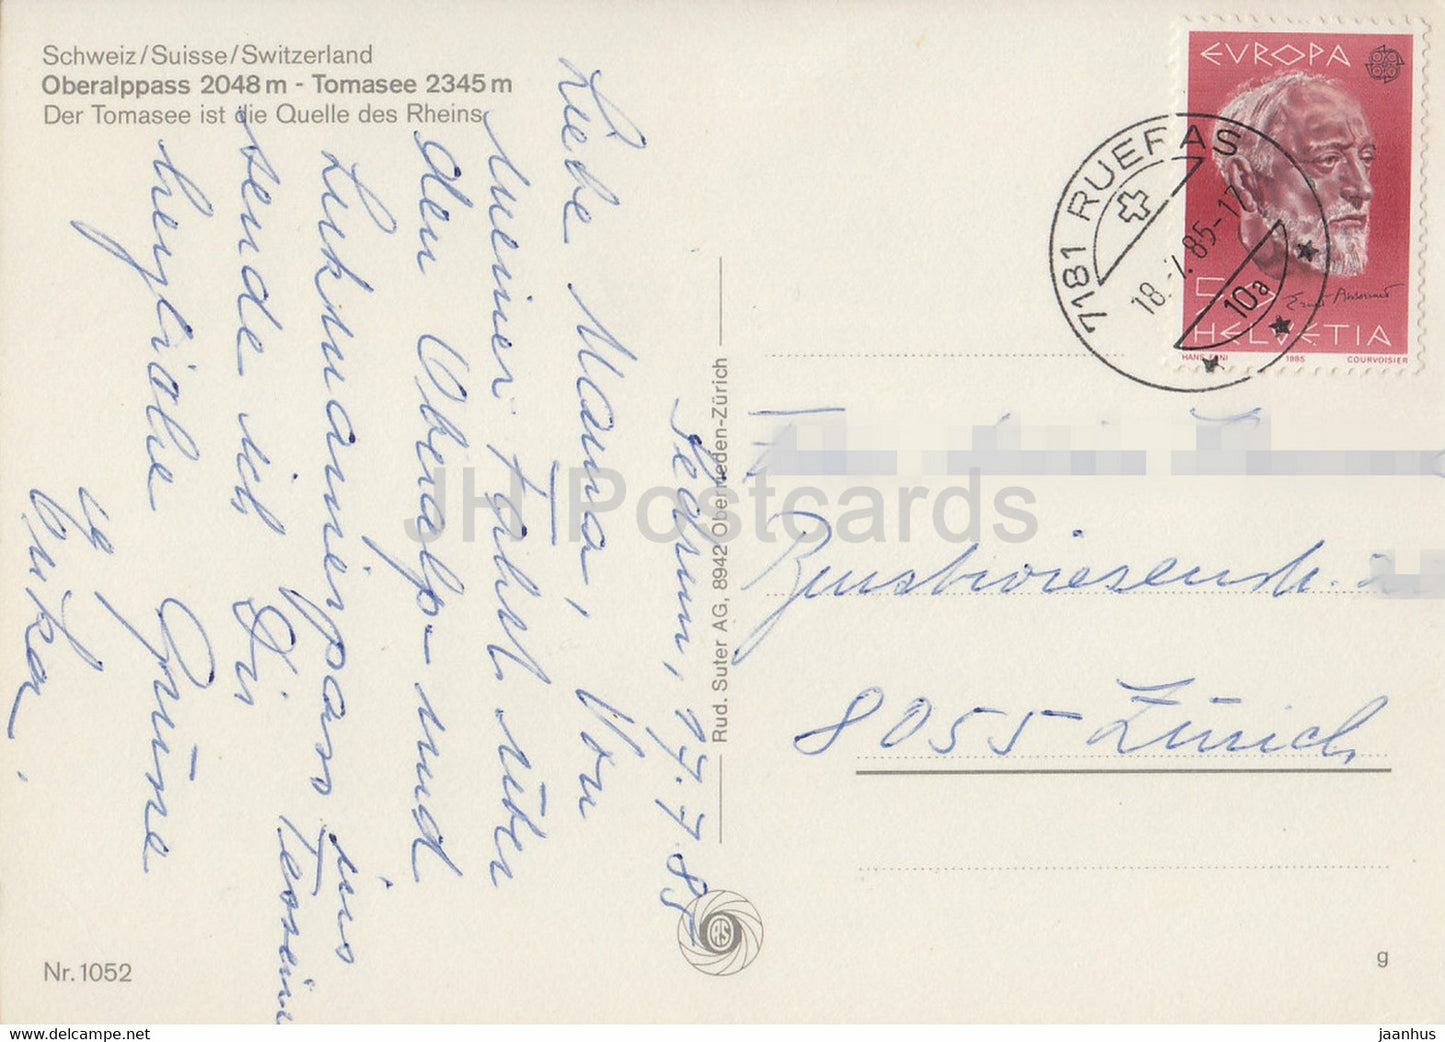 Schweiz/Suisse/Switzerland
Oberalppass 2048 m - Tomasee 2345 m
Der Tomasee ist die Quelle des Rheins
Sedrun, 17.7.85
Liebe Mama, Von
meiner Fahrt über
den Oberalp- und
Lukmanierpass ins Tessin
sende ich Dir
herzliche Grüsse
Nr. 1052
Rud. Suter AG, 8942 Oberrieden-Zürich
RS
EVROPA
50
Ernest Ansermet
HELVETIA
HANS ERNI 1985 COURVOISIER
7181 RUERAS
18.-7.85-17
10a
8055 Zürich
g
JH Postcards
www.delcampe.net
jaanhus